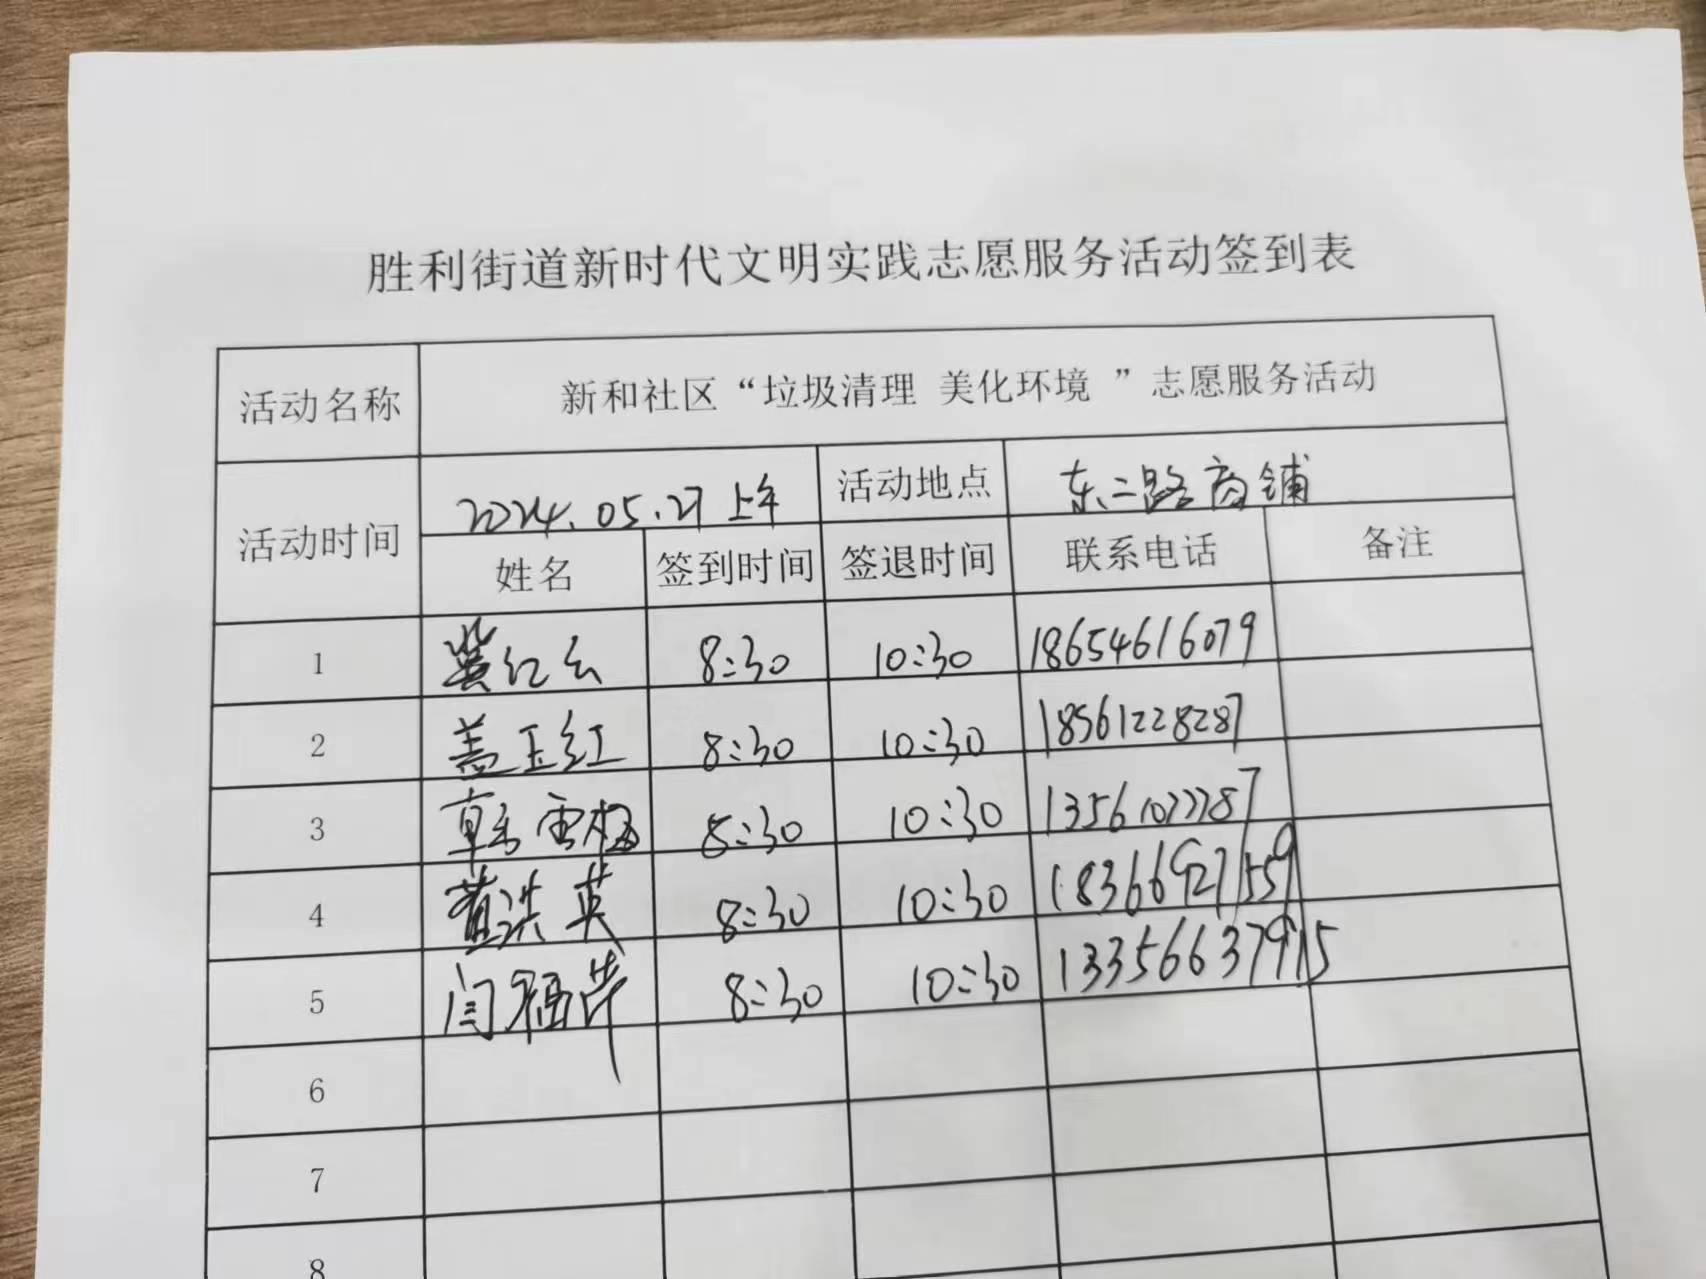 胜利街道新时代文明实践志愿服务活动签到表
活动名称 新和社区“垃圾清理 美化环境 ”志愿服务活动
活动时间 2024.05.27 上午 活动地点 东二路商铺
姓名 签到时间 签退时间 联系电话 备注
1 冀红云 8:30 10:30 18654616079
2 盖玉红 8:30 10:30 18561228287
3 韩雪梅 8:30 10:30
4 董洪英 8:30 10:30 18366927559
5 闫 8:30 10:30 13356637915
6
7
8